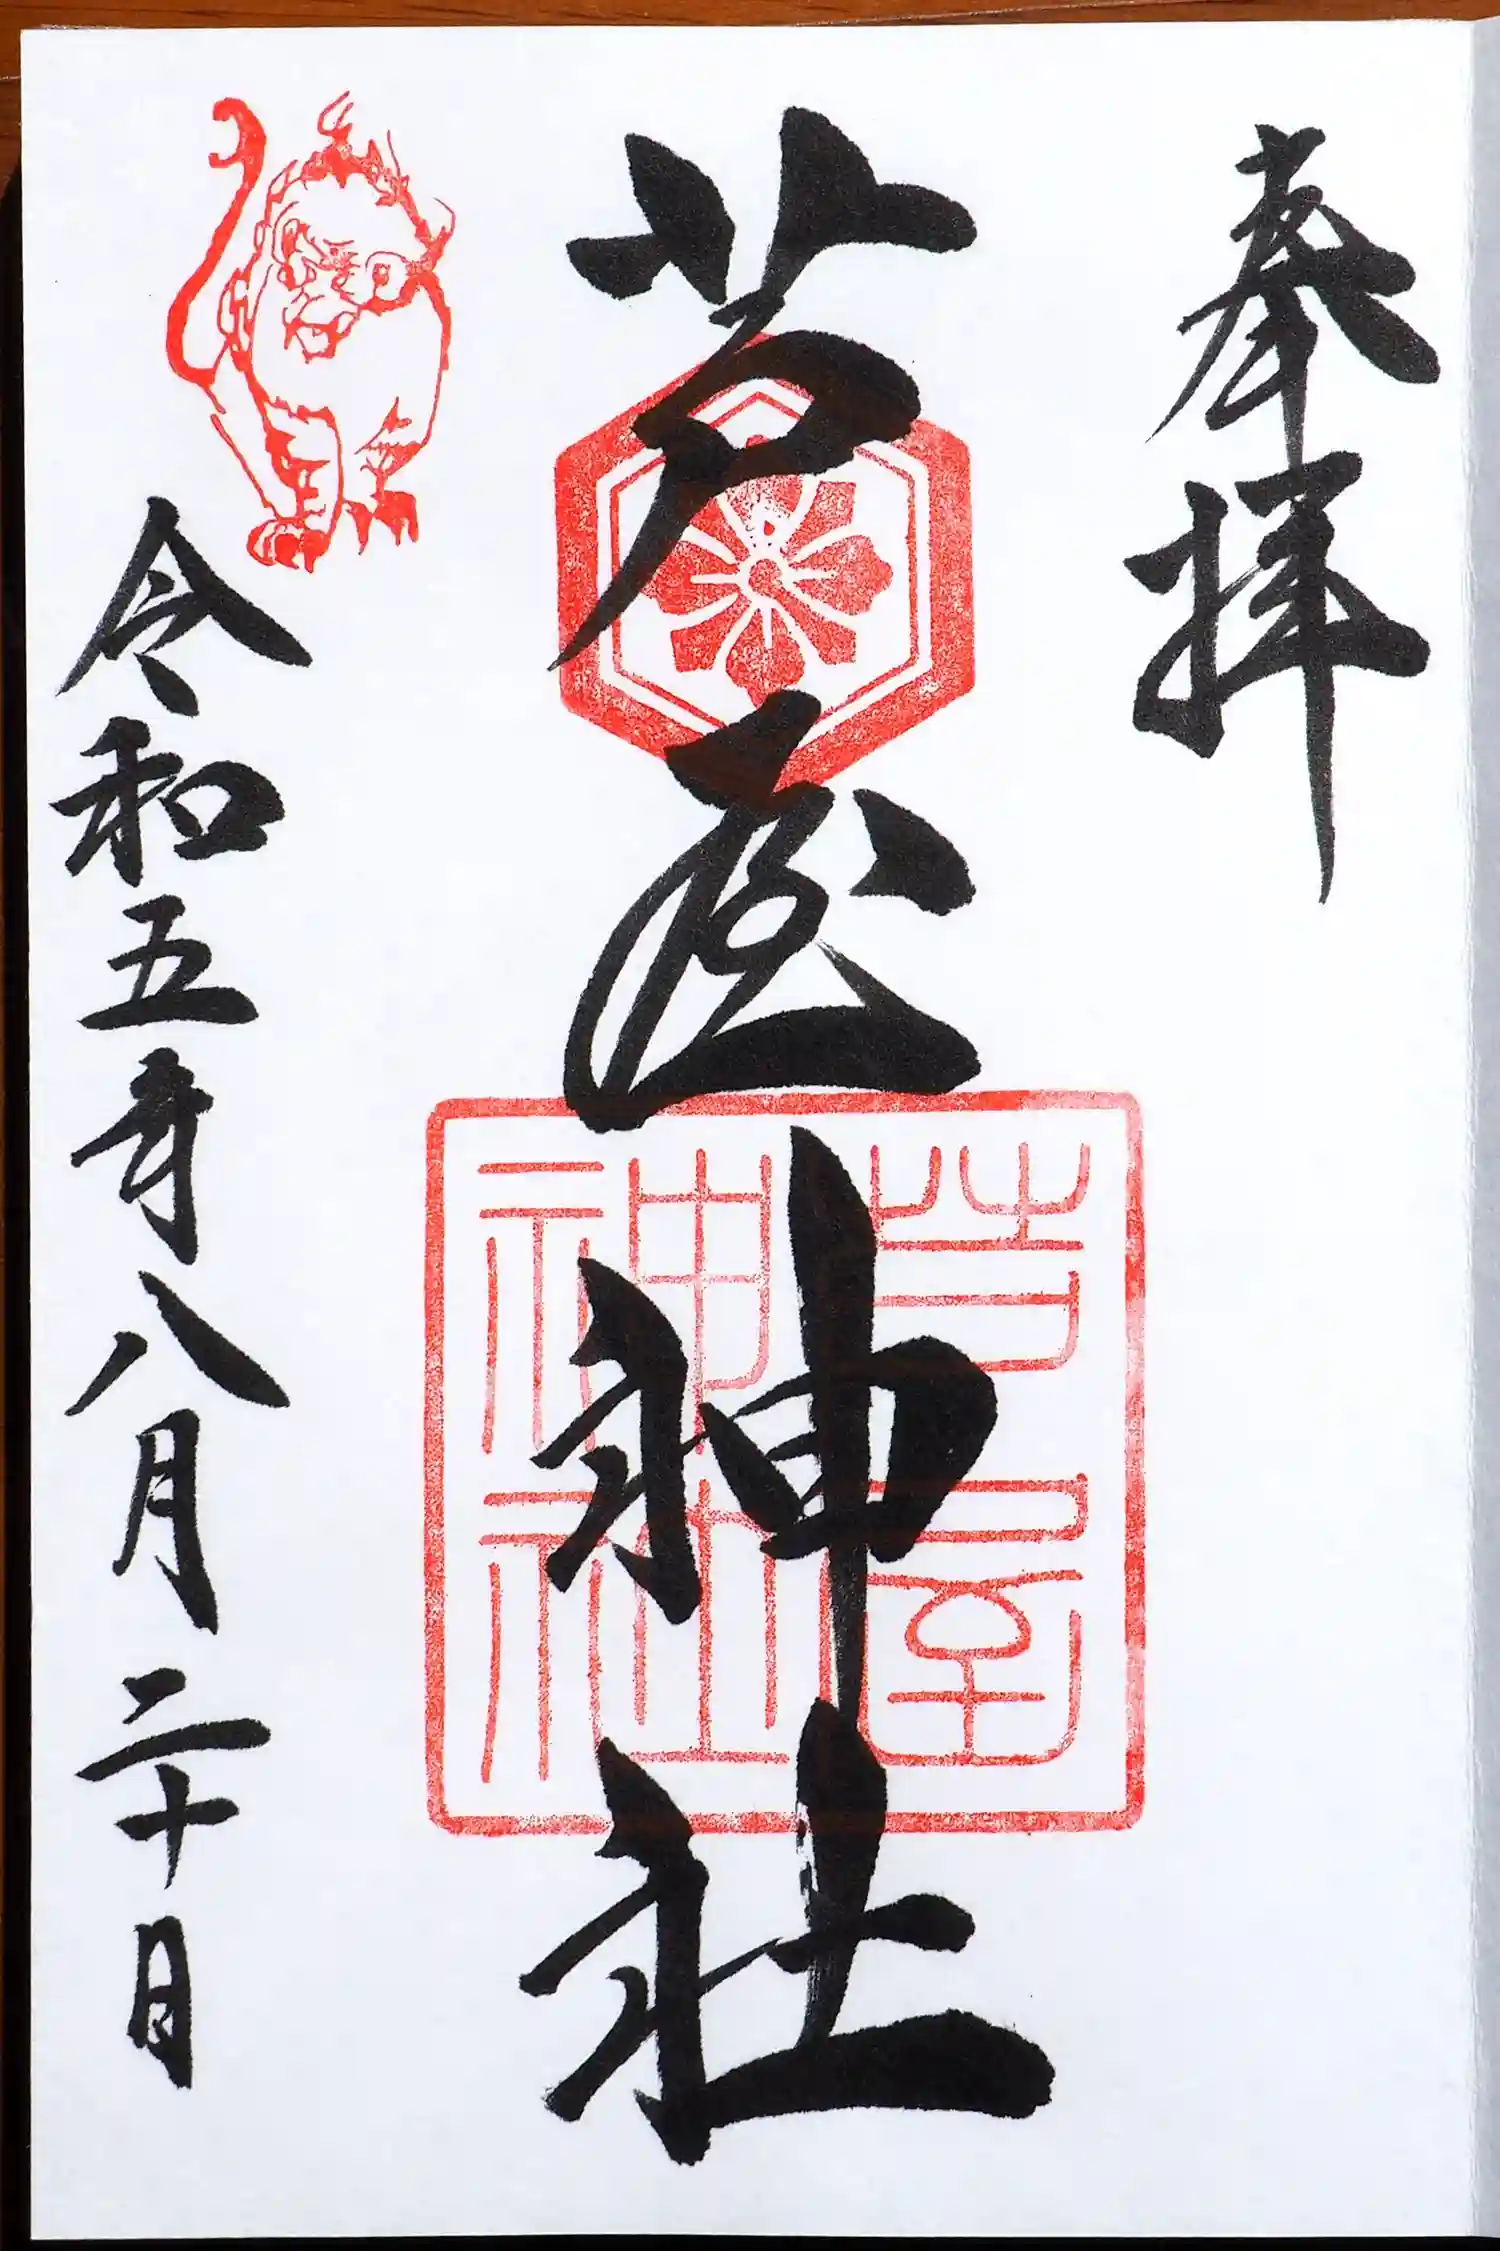 奉拝
芦屋神社
芦屋
神社
令和五年八月二十日